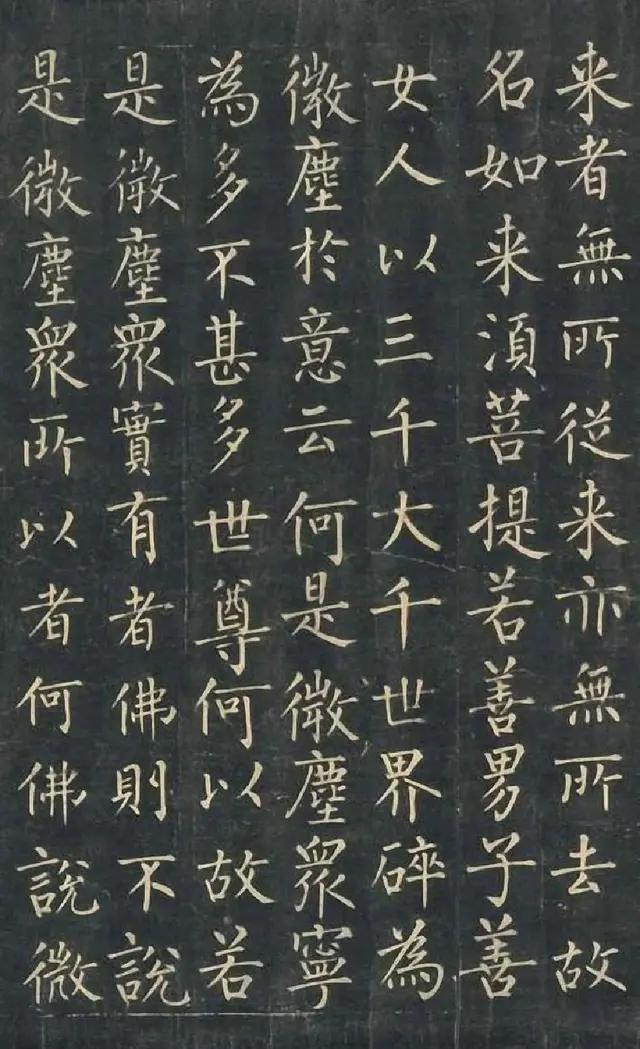 来者無所従来亦無所去故
名如来湏菩提若善男子善
女人以三千大千世界碎為
微塵於意云何是微塵眾寧
為多不甚多世尊何以故若
是微塵眾實有者佛則不說
是微塵眾所以者何佛說微